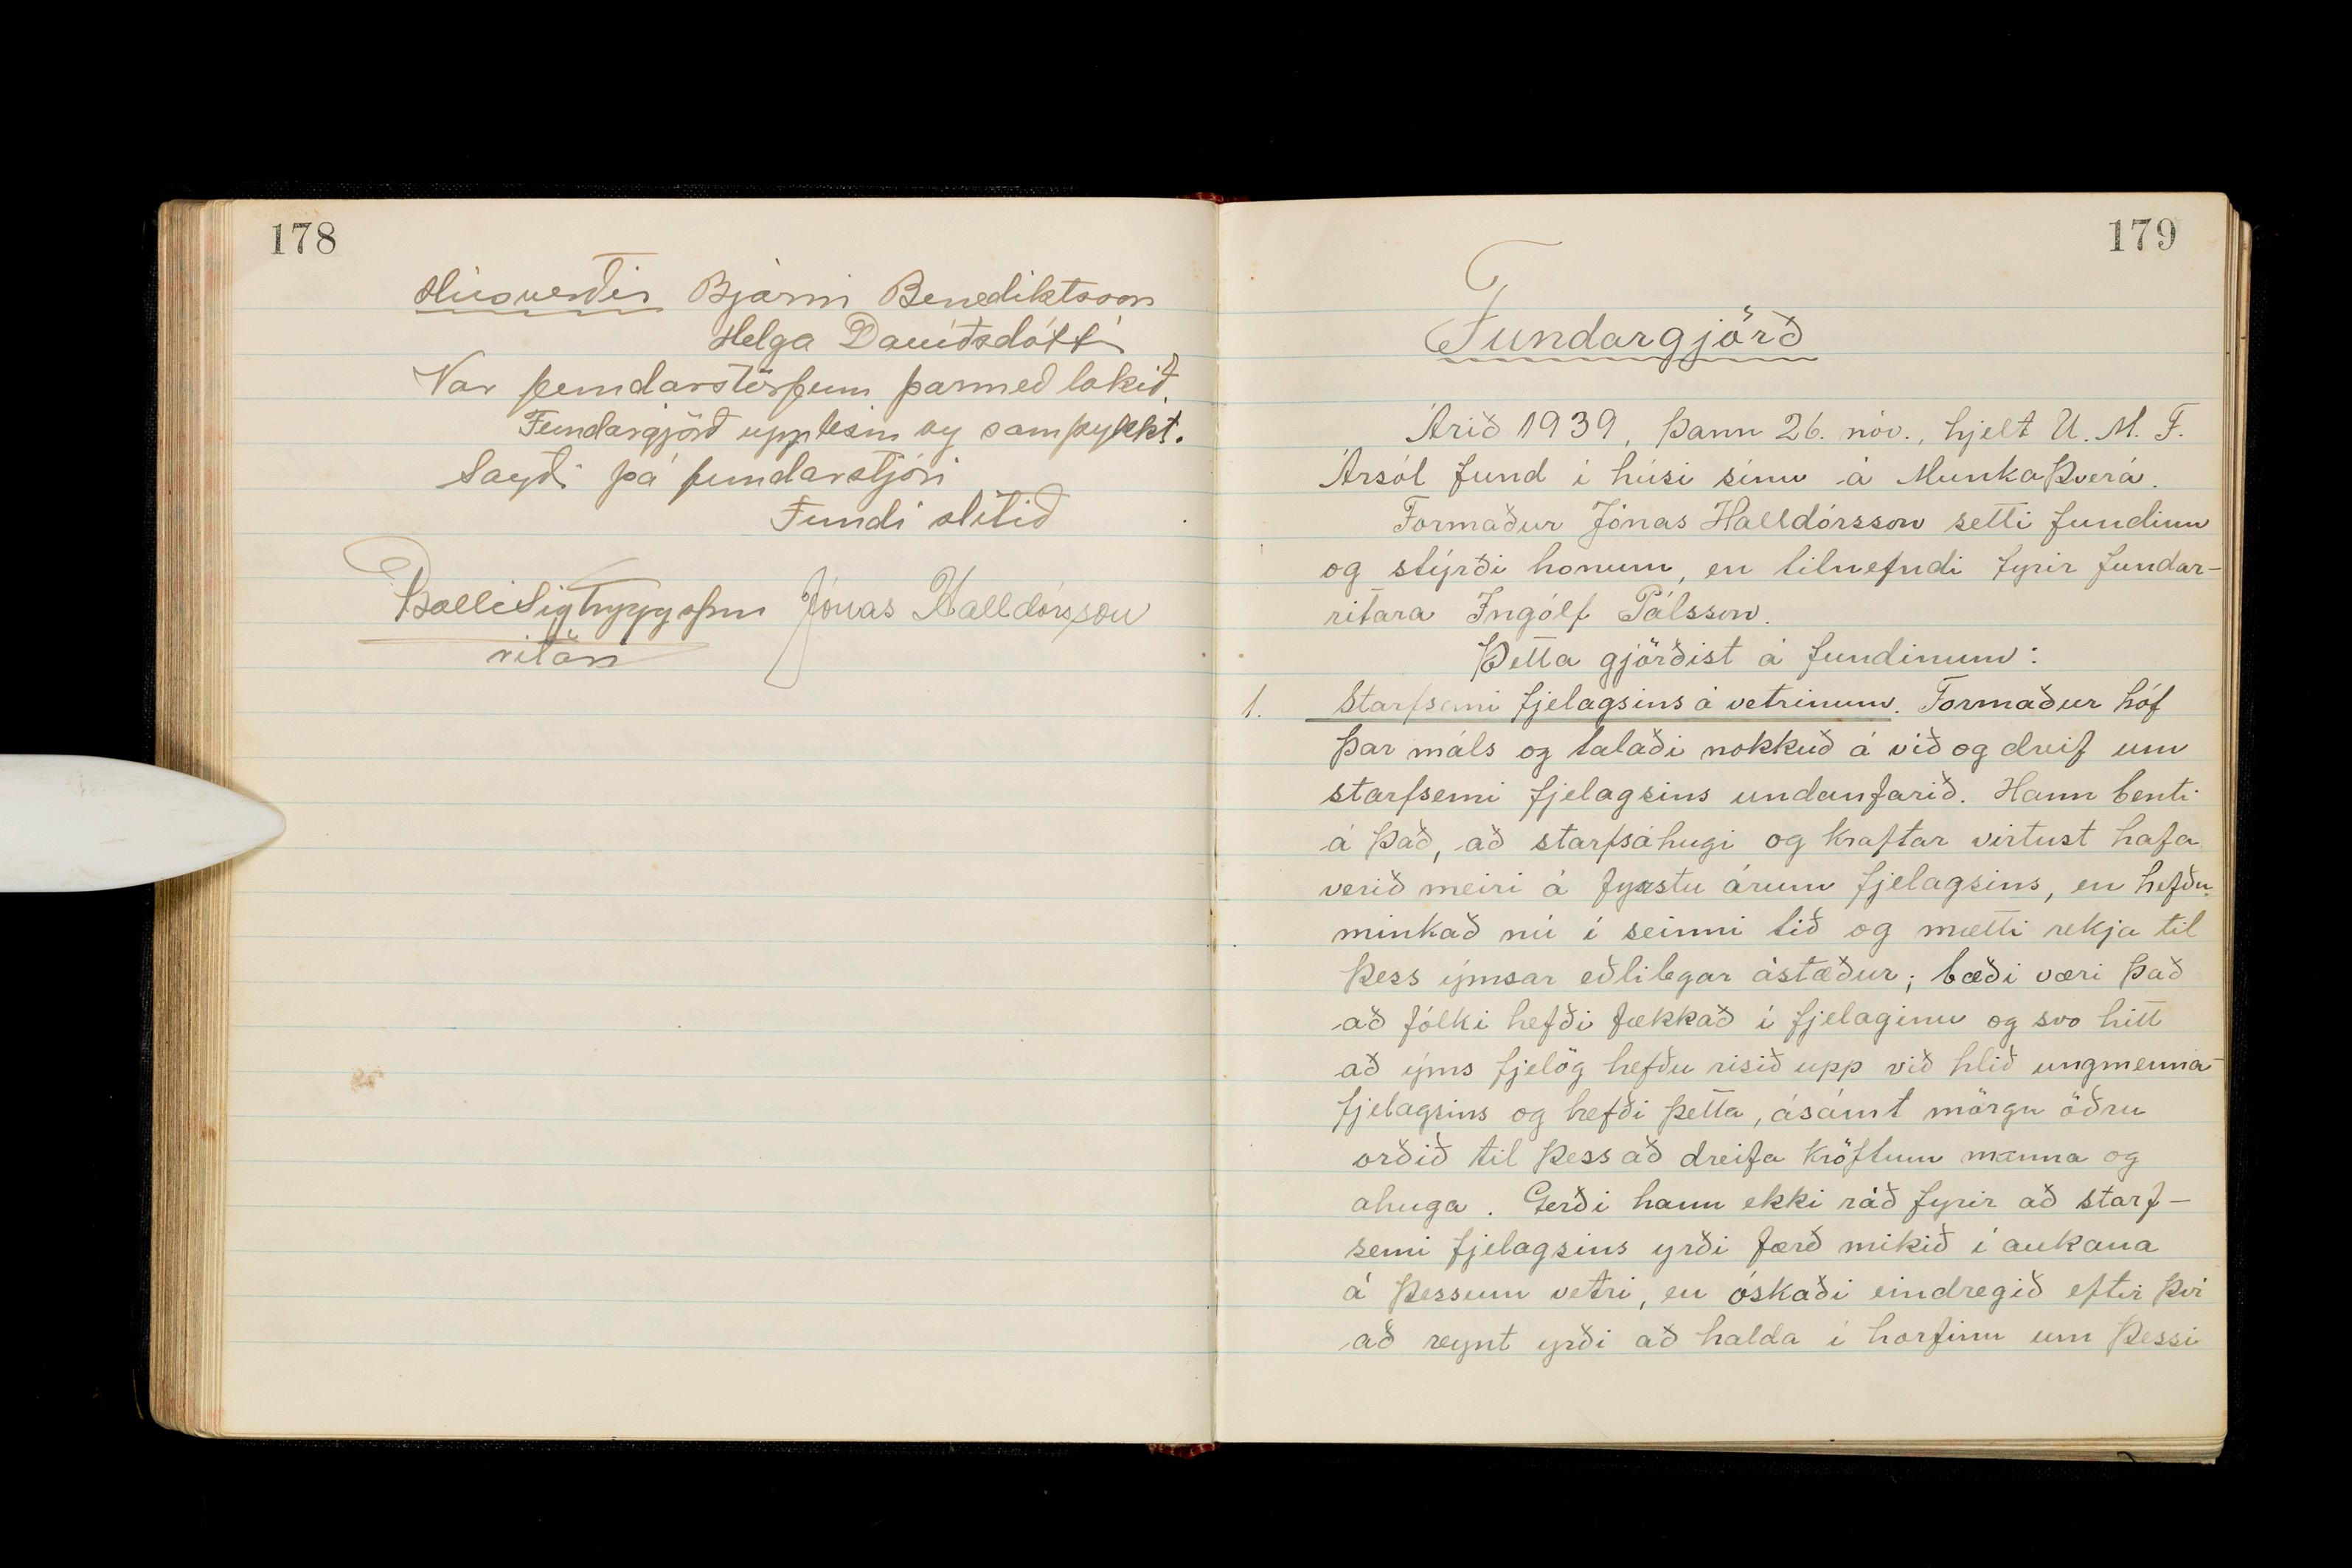 178
Húsverðir Bjarni Benediktsson
Helga Davíðsdótti
Var fundarstörfum þarmeð lokið.
Fundargjörð upplesin og samþykkt.
Sagði þá fundarstjóri
Fundi slitið
Jónas Halldórsson
ritari
179
Fundargjörð
Árið 1939, þann 26. nóv., hjelt U. M. F.
Ársól fund í húsi sínu á Munkaþverá.
Formaður Jónas Halldórsson setti fundinn
og stýrði honum, en tilnefndi fyrir fundar-
ritara Ingólf Pálsson.
Þetta gjörðist á fundinum:
1. Starfsemi fjelagsins á vetrinum. Formaður hóf
þar máls og talaði nokkuð á víð og dreif um
starfsemi fjelagsins undanfarið. Hann benti
á það, að starfsáhugi og kraftar virtust hafa
verið meiri á fyrstu árum fjelagsins, en hefðu
minkað nú í seinni tíð og mætti rekja til
þess ýmsar eðlilegar ástæður; bæði væri það
að fólki hefði fækkað í fjelaginu og svo hitt
að ýms fjelög hefðu risið upp við hlið ungmenna-
fjelagsins og hefði þetta, ásámt mörgu öðru
orðið til þess að dreifa kröftum manna og
ahuga. Gerði hann ekki ráð fyrir að starf-
semi fjelagsins yrði færð mikið í aukana
á þessum vetri, en óskaði eindregið eftir því
að reynt yrði að halda í horfinu um þessi